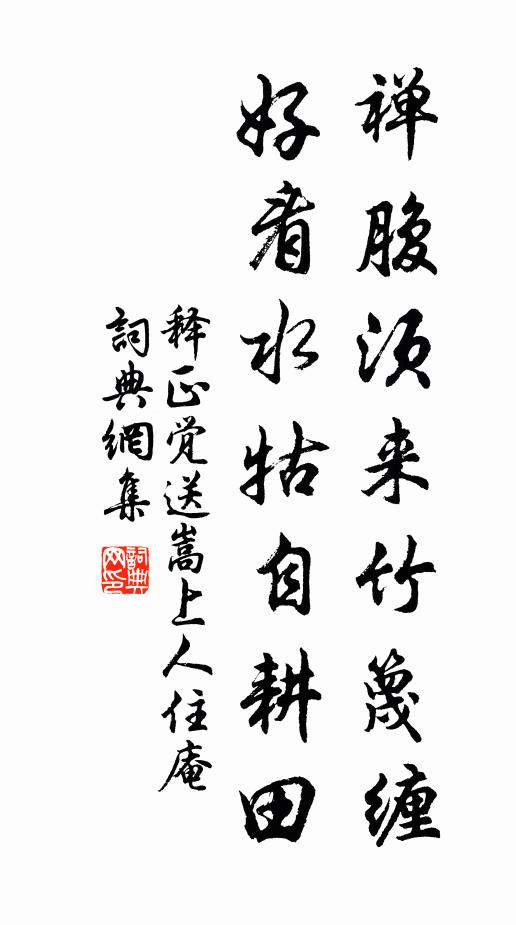 禅腹须来竹篾缠
好看水牯自耕田
释正觉送嵩上人住庵
詞典網集
詞典网印